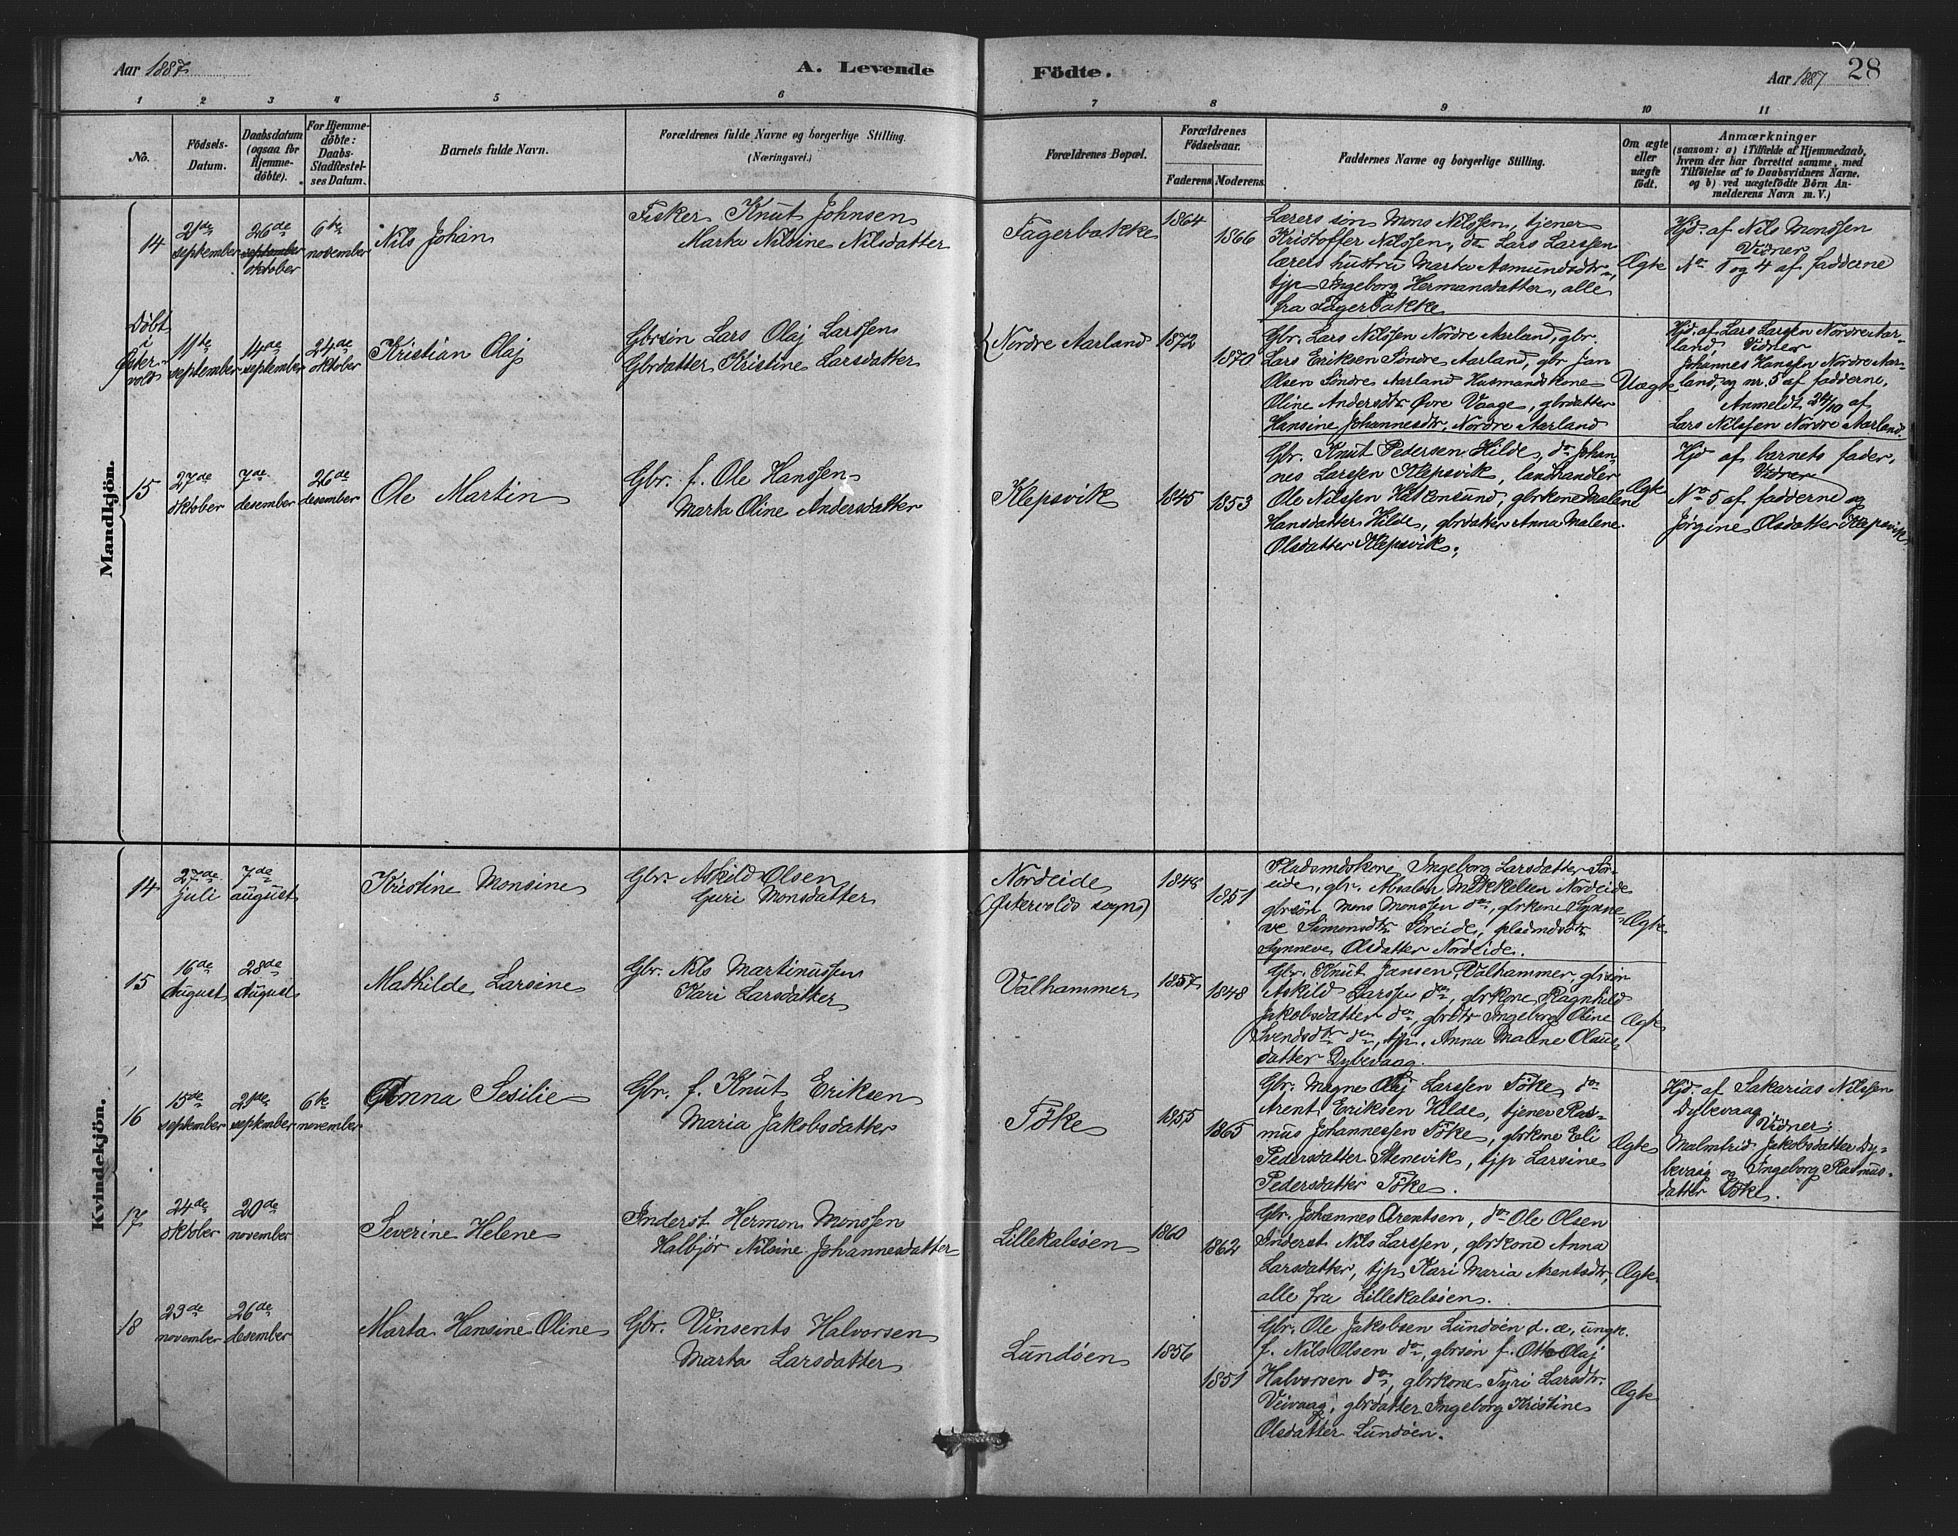 Aar 1887. A. Levende Födte. Aar 1887 28
1 2 3 4 5 6 7 8 9 10 11
No.
Födsels-
Datum.
Daabsdatum
(ogsaa for
Hjemme-
döbte).
For Hjemme-
döbte:
Daabs-
Stadfestel-
ses Datum.
Barnets fulde Navn.
Forældrenes fulde Navne og borgerlige Stilling.
(Næringsvei.)
Forældrenes Bopæl.
Forældrenes
Födselsaar.
Faderens. Moderens.
Faddernes Navne og borgerlige Stilling.
Om ægte
eller
uægte
födt.
Anmærkninger
(saasom: a) i Tilfælde af Hjemmedaab,
hvem der har forrettet samme, med
Tilföielse af to Daabsvidners Navne,
og b) ved uægtefödte Börn An-
melderens Navn m. V.)
Mandkjön.
14
21de
september
26de
september
oktober
6te
november
Nils Johan
Fisker Knut Johnsen
Marta Nilsine Nilsdatter
Fagerbakke
1864
1866
Lærers søn Mons Nilssen, tjener
Kristoffer Nilssen, do Lars Larssen
lærers hustru Marta Asmundsdtr,
tjp Ingeborg Hermansdatter, alle
fra Fagerbakke
Ægte
Hjd. af Nils Monssen
Vidner
No 1 og 4 af fadderne
Döbt
i
Øster-
vold
11te
september
14de
september
24de
oktober
Kristian Olaj
Gbrsøn Lars Olaj Larssen
Gbrdatter Kristine Larsdatter
Nordre Aarland
1872
1870
Gbr. Lars Nilssen Nordre Aarland, gbr.
Lars Eriksen Söndre Aarland, gbr Jan
Olsen Söndre Aarland Husmandskone
Oline Andersdtr Øvre Vaage, gbrdatter
Hansine Johannesdtr. Nordre Aarland
Uægte
Hjd. af Lars Larsen Nordre Aar-
land Vidner
Johannes Hanssen Nordre Aar-
land, og nr. 5 af fadderne.
Anmeldt 24/10 af
Lars Nilssen Nordre Aarland.
15
27de
oktober
7de
desember
26de
desember
Ole Martin
Gbr. f. Ole Hanssen
Marta Oline Andersdatter
Klepsvik
1845
1853
Gbr. Knut Pedersen Hilde, do Johan-
nes Larssen Klepsvik, landhandler
Ole Nilssen gbrkone Malene
Hansdatter Hilde, gbrdatter Anna Malene
Olsdatter Klepsvik.
Ægte
Hjd af barnets fader.
Vidner
No 5 af fadderne og
Jørgine Olsdatter Klepsvik
Kvindekjön.
14
27de
juli
7de
august
Kristine Monsine
Gbr. Askild Olsen
Guri Monsdatter
Nordeide
(Østervolds sogn)
1848
1851
Pladsmdskone Ingeborg Larsdatter Sör-
eide, gbr. Absalon Mikkelsen Nordeide
gbrsön Mons Monssen do, gbrkone Synne-
ve Simonsdtr Söreide, pladsmdsdtr
Synneve Olsdatter Nordeide.
Ægte
15
16de
August
28de
August
Mathilde Larsine
Gbr. Nils Martinussen
Kari Larsdatter
Valhammer
1857
1848
Gbr. Knut Jansen Valhammer gbrsön
Askild Larssen do, gbrkone Ragnhild
Jakobsdatter do, gbrdtr Ingeborg Oline
Svendsdtr do, tjp. Anna Malene Olaus-
datter Dybevaag.
Ægte
16
15de
september
25de
september
6te
november
Anna Sesilie
Gbr. f. Knut Eriksen
Maria Jakobsdatter
Töke
1855
1865
Gbr. Magne Olaj Larssen Töke, do
Arent Eriksen Hilde, tjener Ras-
mus Johannessen Töke, gbrkone Eli
Pedersdatter Stenevik, tjp Larsine
Pedersdatter Töke.
Ægte
Hjd. af Sakarias Nilssen
Dybevaag
Vidner:
Malmfrid Jakobsdatter Dy-
bevaag og Ingeborg Rasmus-
datter Töke.
17
24de
oktober
20de
november
Severine Helene
Inderst Hermon Monssen
Halbjör Nilsine Johannesdatter
Lillekalsöen
1860
1862
Gbr. Johannes Arentsen, do Ole Olsen
Inderst Nils Larssen, gbrkone Anna
Larsdatter, tjp Kari Maria Arentsdtr,
alle fra Lillekalsöen.
Ægte
18
23de
november
26de
desember
Marta Hansine Oline
Gbr. Vinsents Halvorsen
Marta Larsdatter
Lundöen
1856
1851
Gbr. Ole Jakobsen Lundöen d. æ, ungk.
f. Nils Olsen do, gbrsön f. Otto Olaj
Halvorsen do, gbrkone Tyri Larsdtr.
Veivaag, gbrdatter Ingeborg Kristine
Olsdatter Lundöen.
Ægte